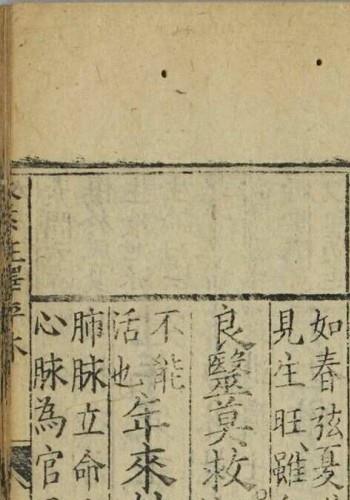 如春弦夏
見生旺雖
良醫莫救
不能
活也
年來
肺脉立命
心脉為官